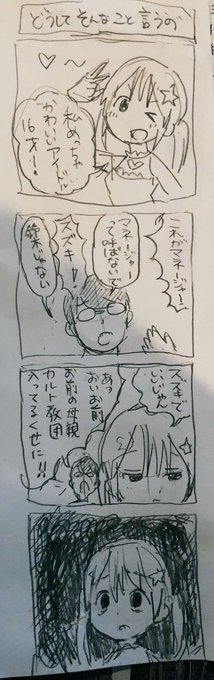 どうしてそんなこと言うの
私めっちゃ
かわいいアイドル
16才ー!
これがマネージャー
マネージャー
って呼ばないで
スズキ!
鈴木じゃない
スズキで
いいじゃん
あっ
おいお前
お前の母親
カルト教団
入ってるくせに!!